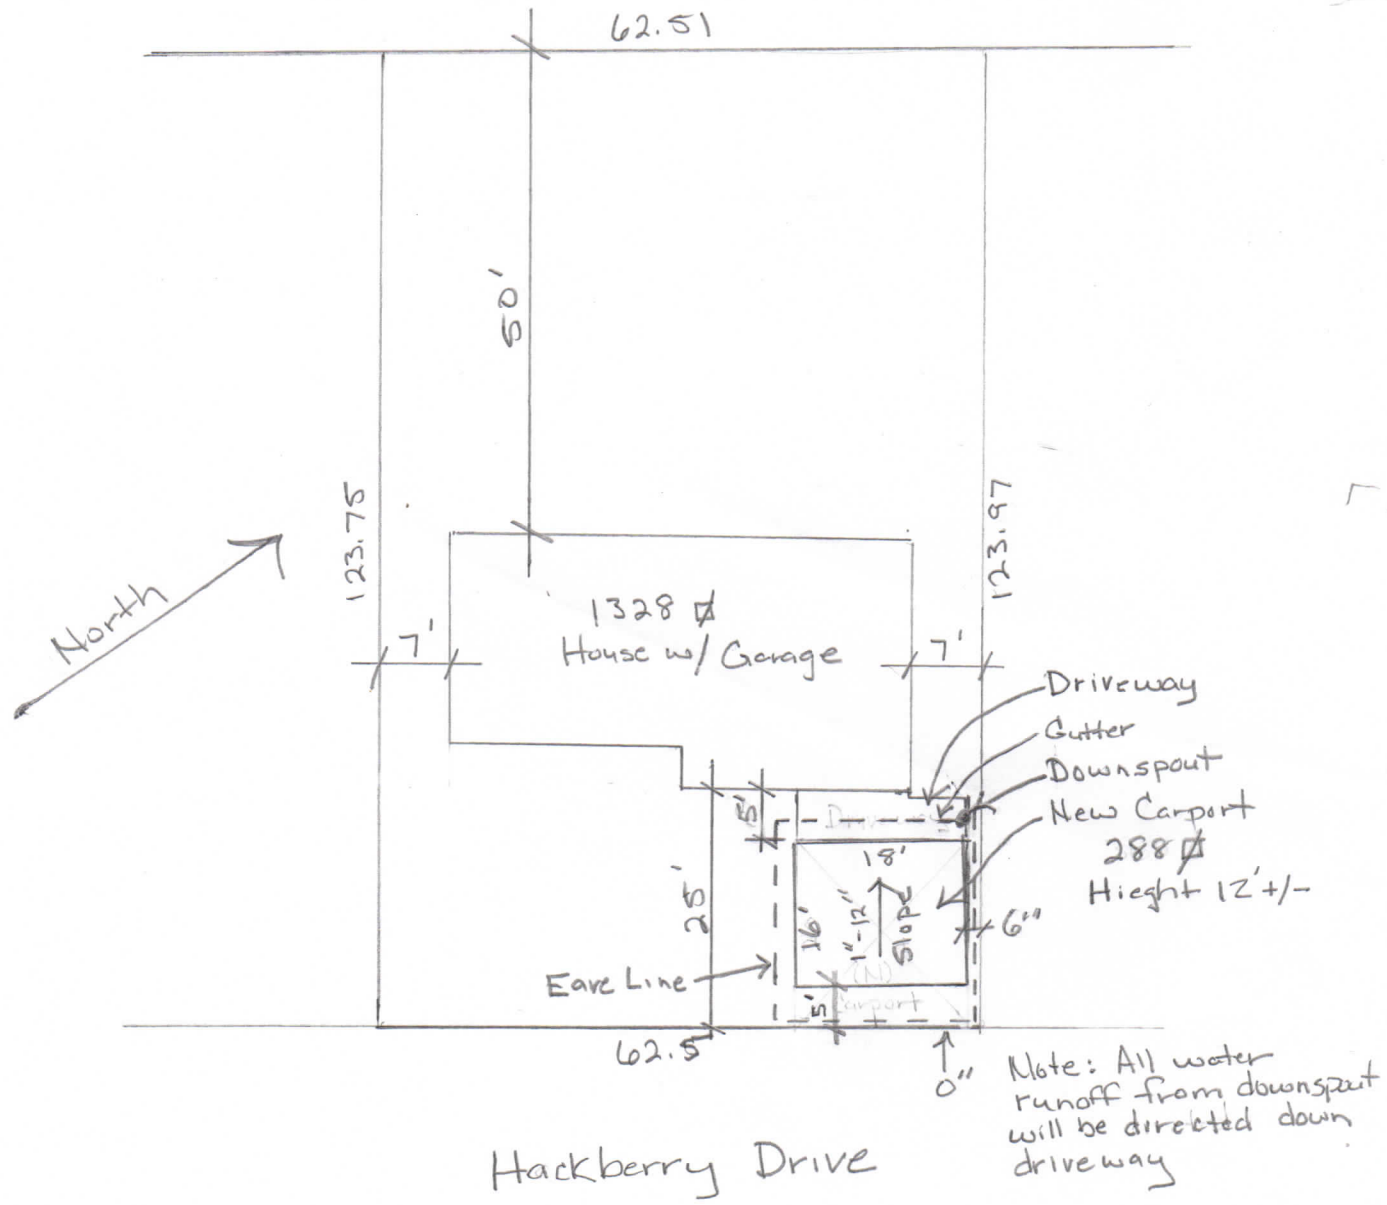 62.51
50'
123.75
123.97
North
1328 ⌷
House w/ Garage
7'
7'
Driveway
Gutter
Downspout
New Carport
288 ⌷
Hieght 12'+/-
5'
Driveway
18'
16'
1"-12"
Slope
25'
6"
Eave Line
(N)
Carport
5'
62.5
0"
Note: All water
runoff from downspout
will be directed down
driveway
Hackberry Drive